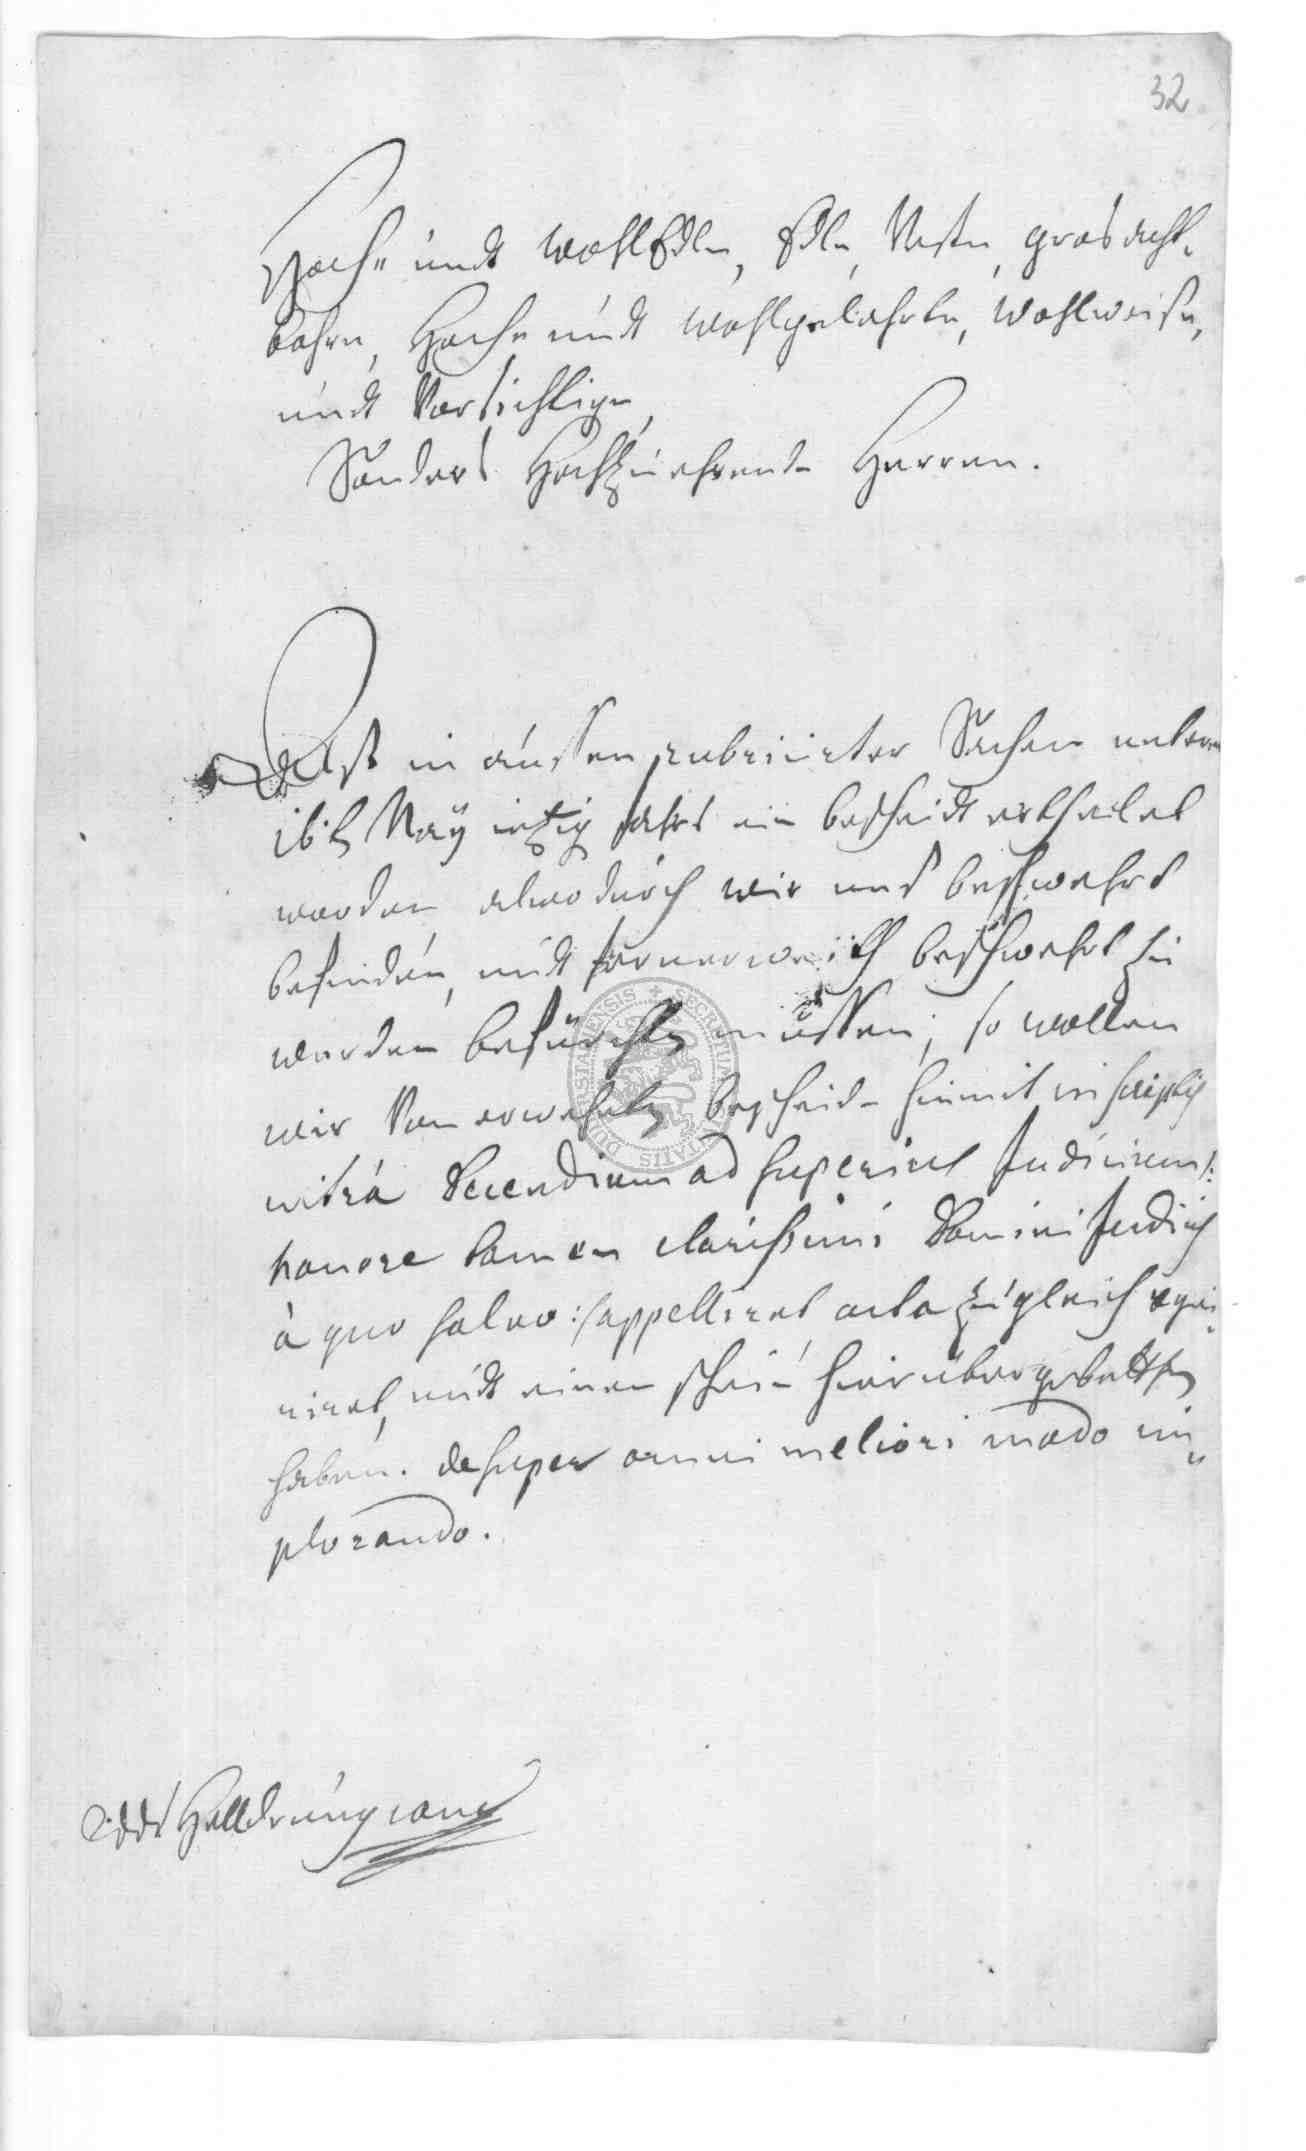 32
Hoch- undt WohlEdle, Edle, Veste, grosacht-
bahre, Hoch- undt wohlgelahrte, wohlweise,
undt Vorsichtige,
Sonders Hochzuehrende Herren.
Alß in aussen rubricirter Sachen unterm
16t May ietzig Jahrs ein bescheidt ertheilet
worden, alwodurch wir uns beschwehrt
befinden, undt fernerweith beschwehrt zu
werden befürchten müssen; so wollen
wir Von erwehnten bescheide hiermit in scriptis
intra Decendium ad superius Judicium /:
honore tamen clarissimi Domini Judicis
à quo salvo :/ appelliret acta zugleich requi-
riret, undt einen schein hierüber gebetten
haben. desuper omni meliori modo im-
plorando.